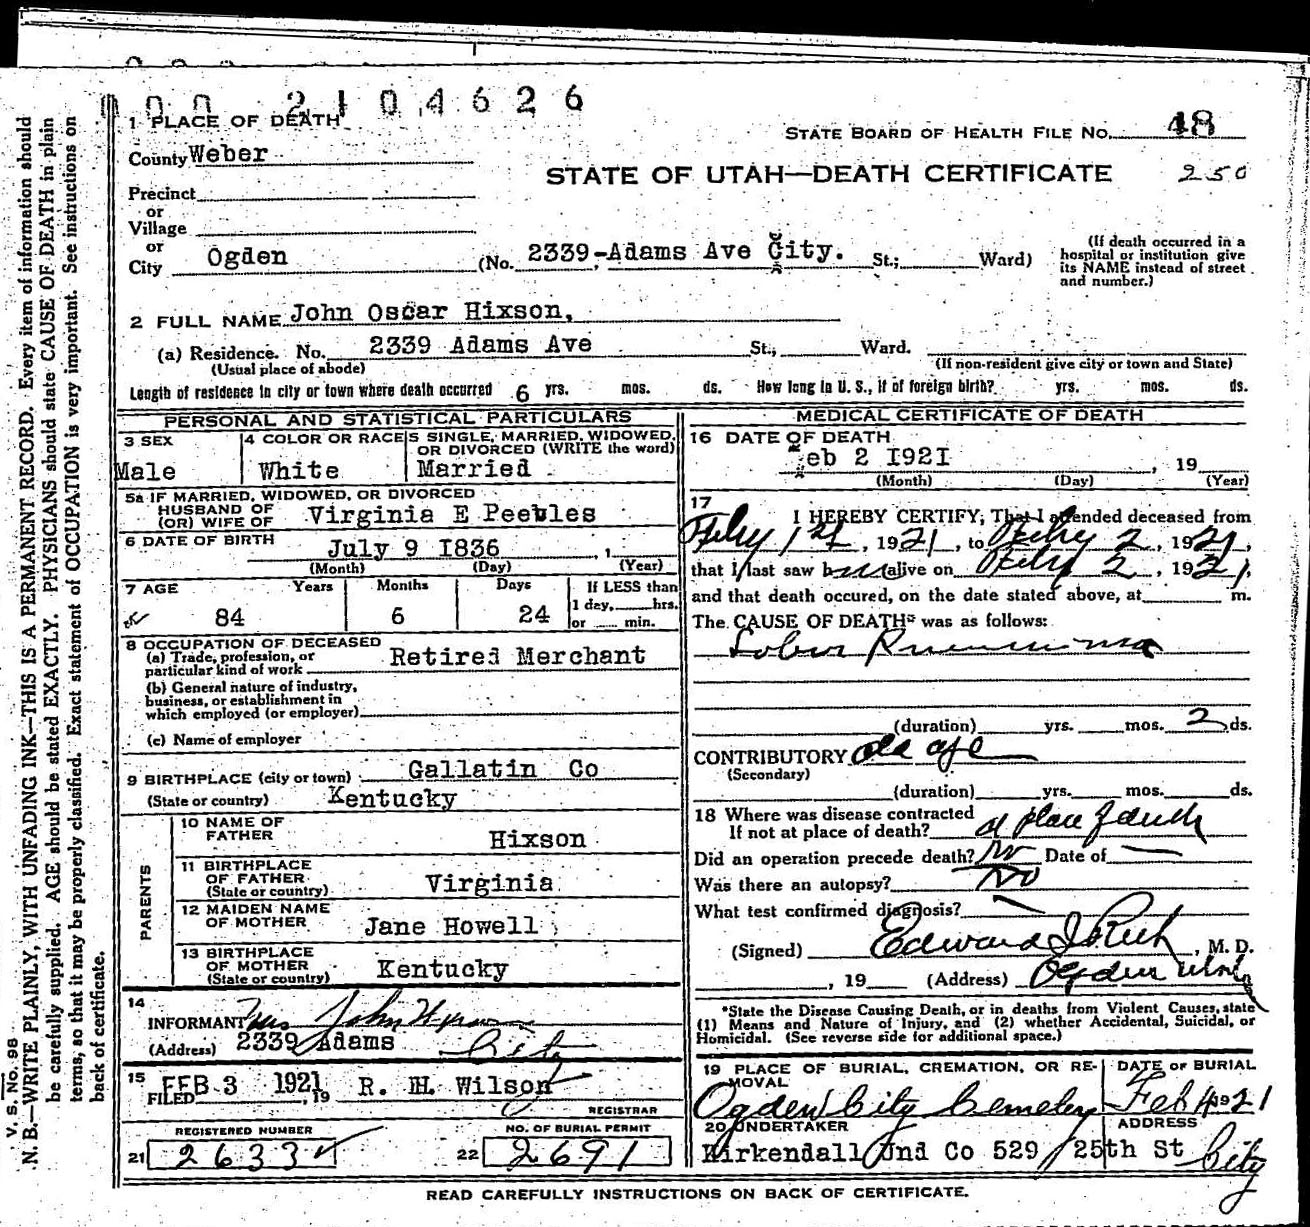 00 2104626
1 PLACE OF DEATH
STATE BOARD OF HEALTH FILE NO. 48
County Weber
STATE OF UTAH—DEATH CERTIFICATE 250
Precinct
or
Village
or
City Ogden (No. 2339-Adams Ave City. St.; Ward)
(If death occurred in a
hospital or institution give
its NAME instead of street
and number.)
2 FULL NAME John Oscar Hixson,
(a) Residence. No. 2339 Adams Ave St., Ward.
(Usual place of abode) (If non-resident give city or town and State)
Length of residence in city or town where death occurred 6 yrs. mos. ds. How long in U. S., if of foreign birth? yrs. mos. ds.
PERSONAL AND STATISTICAL PARTICULARS
3 SEX 4 COLOR OR RACE 5 SINGLE, MARRIED, WIDOWED,
OR DIVORCED (WRITE the word)
Male White Married
5a IF MARRIED, WIDOWED, OR DIVORCED
HUSBAND OF
(OR) WIFE OF Virginia E Peebles
6 DATE OF BIRTH July 9 I836
(Month) (Day) (Year)
7 AGE Years Months Days If LESS than
84 6 24 1 day, hrs.
or min.
8 OCCUPATION OF DECEASED
(a) Trade, profession, or
particular kind of work Retired Merchant
(b) General nature of industry,
business, or establishment in
which employed (or employer)
(c) Name of employer
9 BIRTHPLACE (city or town) Gallatin Co
(State or country) Kentucky
PARENTS
10 NAME OF
FATHER Hixson
11 BIRTHPLACE
OF FATHER
(State or country) Virginia
12 MAIDEN NAME
OF MOTHER Jane Howell
13 BIRTHPLACE
OF MOTHER
(State or country) Kentucky
14
INFORMANT Mrs John Hixson
(Address) 2339 Adams City
15 FEB 3 1921 R. H. Wilson
FILED , 19 REGISTRAR
REGISTERED NUMBER NO. OF BURIAL PERMIT
21 2633 22 2691
MEDICAL CERTIFICATE OF DEATH
16 DATE OF DEATH
eb 2 I92I , 19
(Month) (Day) (Year)
17
I HEREBY CERTIFY, That I attended deceased from
Feby 1st, 1921, to Feby 2, 1921,
that I last saw him alive on Feby 2, 1921,
and that death occured, on the date stated above, at m.
The CAUSE OF DEATH* was as follows:
Lobar Pneumonia
(duration) yrs. mos. 2 ds.
CONTRIBUTORY old age
(Secondary)
(duration) yrs. mos. ds.
18 Where was disease contracted
If not at place of death? at place of death
Did an operation precede death? No Date of —
Was there an autopsy? No
What test confirmed diagnosis?
(Signed) Edward I Rich, M. D.
, 19 (Address) Ogden Utah
*State the Disease Causing Death, or in deaths from Violent Causes, state
(1) Means and Nature of Injury, and (2) whether Accidental, Suicidal, or
Homicidal. (See reverse side for additional space.)
19 PLACE OF BURIAL, CREMATION, OR RE-
MOVAL
DATE OF BURIAL
Ogden City Cemetery Feb 4 1921
20 UNDERTAKER ADDRESS
Kirkendall Und Co 529 25th St City
READ CAREFULLY INSTRUCTIONS ON BACK OF CERTIFICATE.
V. S. No. 98
N. B.—WRITE PLAINLY, WITH UNFADING INK—THIS IS A PERMANENT RECORD. Every item of information should
be carefully supplied. AGE should be stated EXACTLY. PHYSICIANS should state CAUSE OF DEATH in plain
terms, so that it may be properly classified. Exact statement of OCCUPATION is very important. See instructions on
back of certificate.